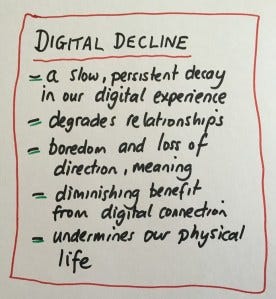 DIGITAL DECLINE
- a slow, persistent decay
in our digital experience
- degrades relationships
- boredom and loss of
direction, meaning
- diminishing benefit
from digital connection
- undermines our physical
life